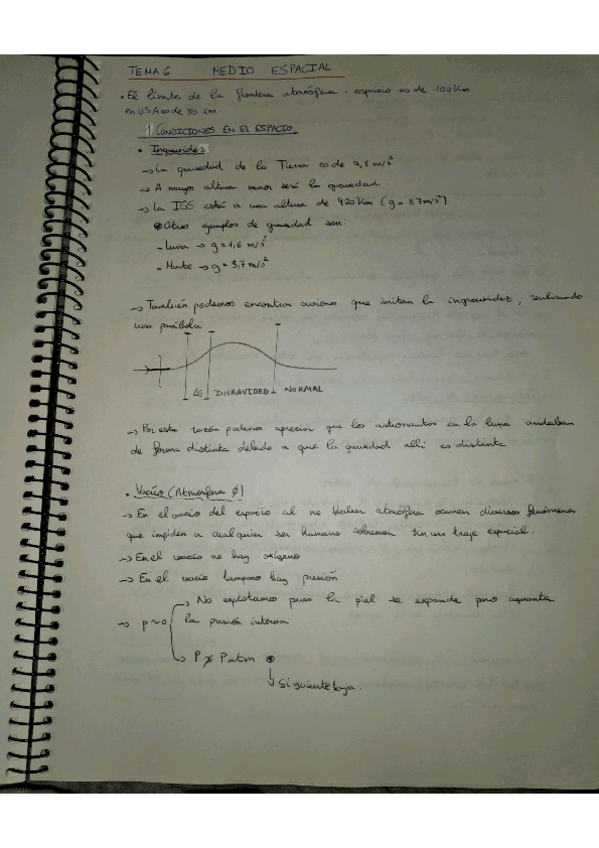 TEMA 6 MEDIO ESPACIAL
• El límite de la frontera atmósfera - espacio es de 100 Km
en USA es de 80 km.
1. CONDICIONES EN EL ESPACIO
• Ingravidez
→ La gravedad de la Tierra es de 9,8 m/s²
→ A mayor altura menor será la gravedad
→ La ISS está a una altura de 420 Km (g = 8,7 m/s²)
Otros ejemplos de gravedad son:
- Luna → g = 1,6 m/s²
- Marte → g = 3,7 m/s²
→ También podemos encontrar aviones que imitan la ingravidez, realizando
una parábola
ΔG INGRAVIDED NORMAL
→ Por esta razón podemos apreciar que los astronautas en la luna andaban
de forma distinta debido a que la gravedad allí es distinta
• Vacío (Atmosfera ∅)
→ En el vacío del espacio al no haber atmósfera ocurren diversos fenómenos
que impiden a cualquier ser humano sobrevivir sin un traje espacial.
→ En el vacío no hay oxígeno
→ En el vacío tampoco hay presión
→ No explotamos pues la piel se expande pero aguanta
→ p ~ 0 la presión interna
→ P Patm
↓ Siguiente hoja.